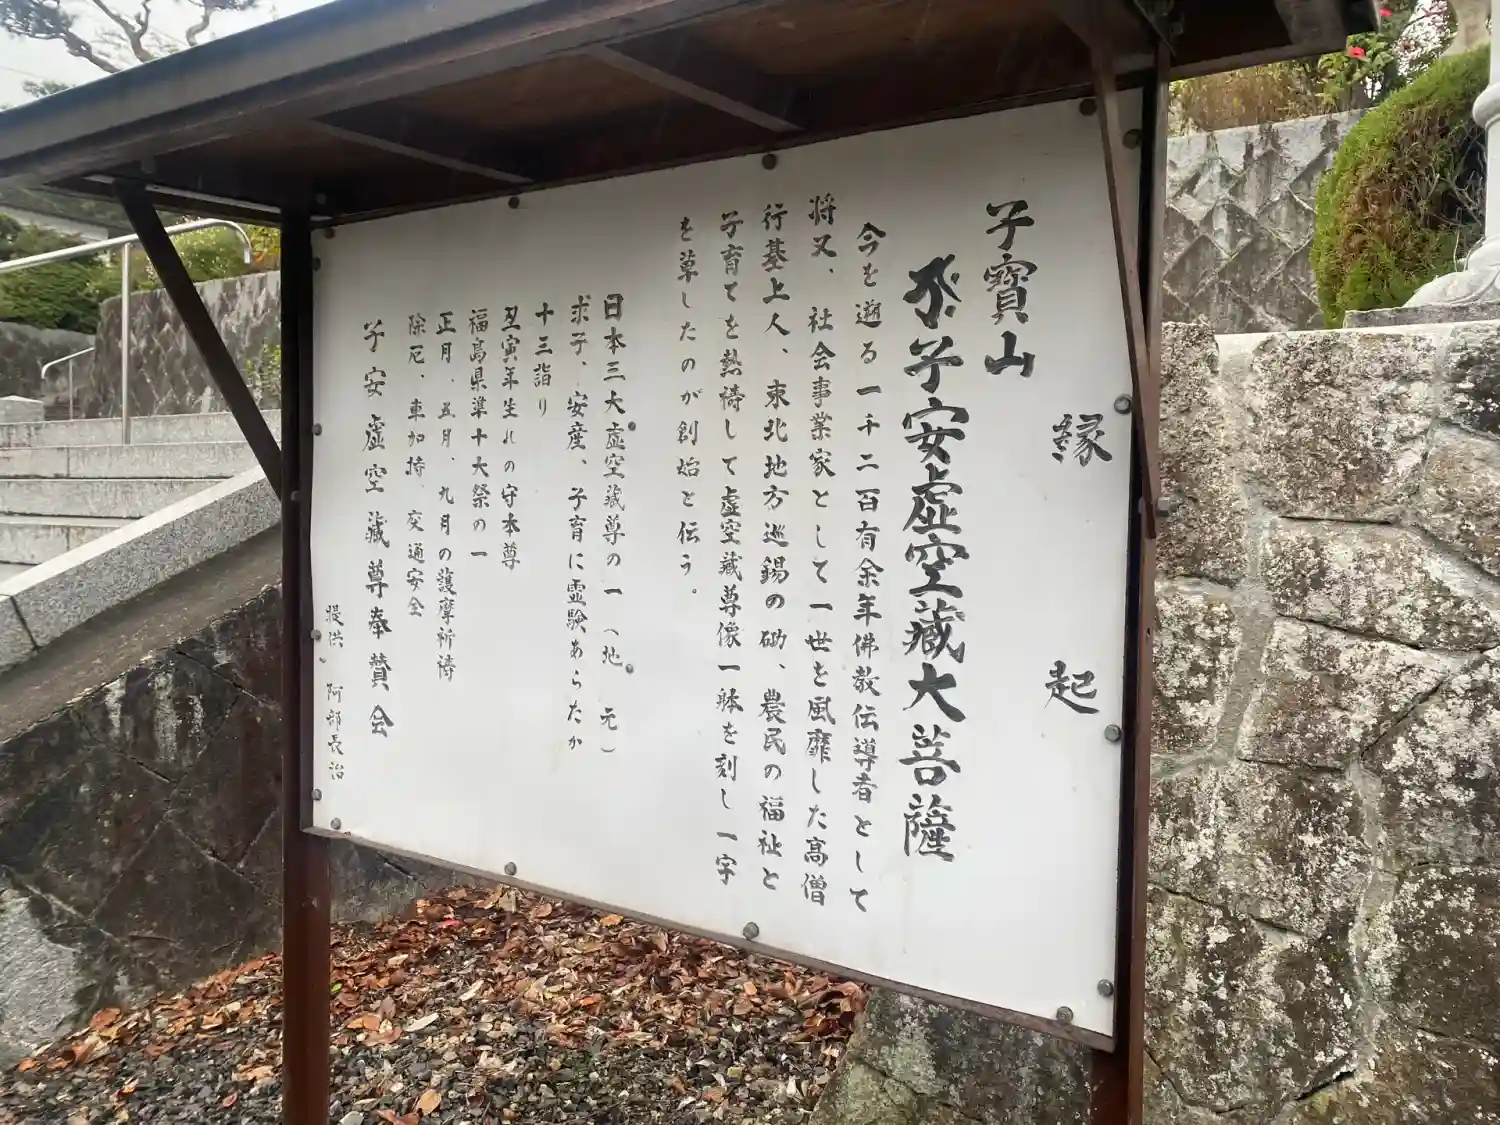 縁起
子寳山
子安虚空蔵大菩薩
今を遡る一千二百有余年佛教伝導者として
将又、社会事業家として一世を風靡した高僧
行基上人、東北地方巡錫の砌、農民の福祉と
子育てを熱祷して虚空蔵尊像一躰を刻し一字
を草したのが創始と伝う。
日本三大虚空蔵尊の一（地元）
求子、安産、子育に霊験あらたか
十三詣り
丑寅年生れの守本尊
福島県準十大祭の一
正月、五月、九月の護摩祈祷
除厄、車加持、交通安全
子安虚空蔵尊奉賛会
提供 阿部長治